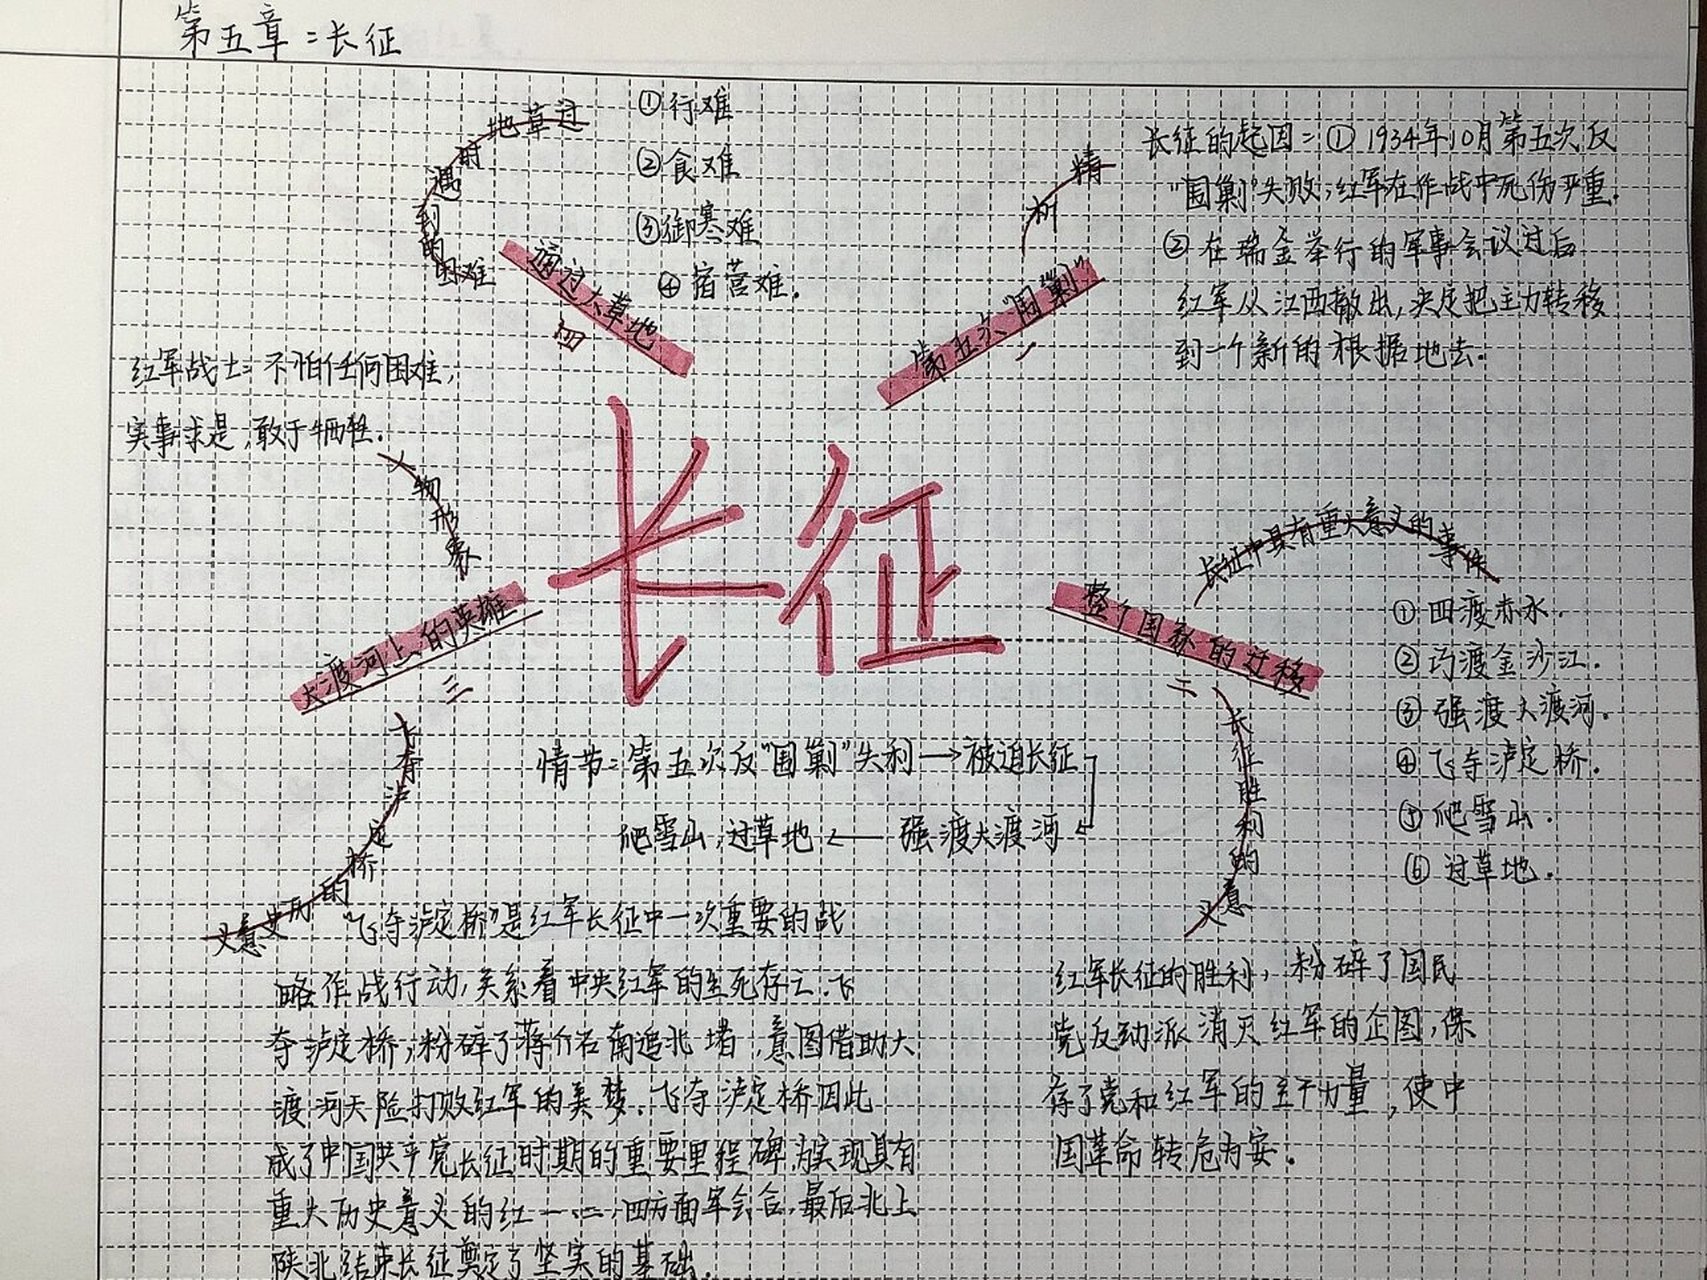 第五章：长征
过草地时遇到的困难
①行难
②食难
③御寒难
④宿营难.
通过大草地
四
精析
长征的起因：①1934年10月第五次反
“围剿”失败,红军在作战中死伤严重.
②在瑞金举行的军事会议过后
红军从江西撤出,决定把主力转移
到一个新的根据地去.
第五次“围剿”
一
红军战士:不怕任何困难,
实事求是,敢于牺牲.
人物形象
长征
大渡河上的英雄
三
整个国家的迁移
二
长征中具有重大意义的事件
①四渡赤水.
②巧渡金沙江.
③强渡大渡河.
④飞夺泸定桥.
⑤爬雪山.
⑥过草地.
情节：第五次反“围剿”失利→被迫长征
爬雪山,过草地←强渡大渡河
飞夺泸定桥的历史意义
“飞夺泸定桥”是红军长征中一次重要的战
略作战行动,关系着中央红军的生死存亡.飞
夺泸定桥,粉碎了蒋介石南追北堵,意图借助大
渡河天险打败红军的美梦.飞夺泸定桥因此
成了中国共产党长征时期的重要里程碑,为实现具有
重大历史意义的红一、二、四方面军会合,最后北上
陕北结束长征奠定了坚实的基础.
长征胜利的意义
红军长征的胜利,粉碎了国民
党反动派消灭红军的企图,保
存了党和红军的主干力量,使中
国革命转危为安.